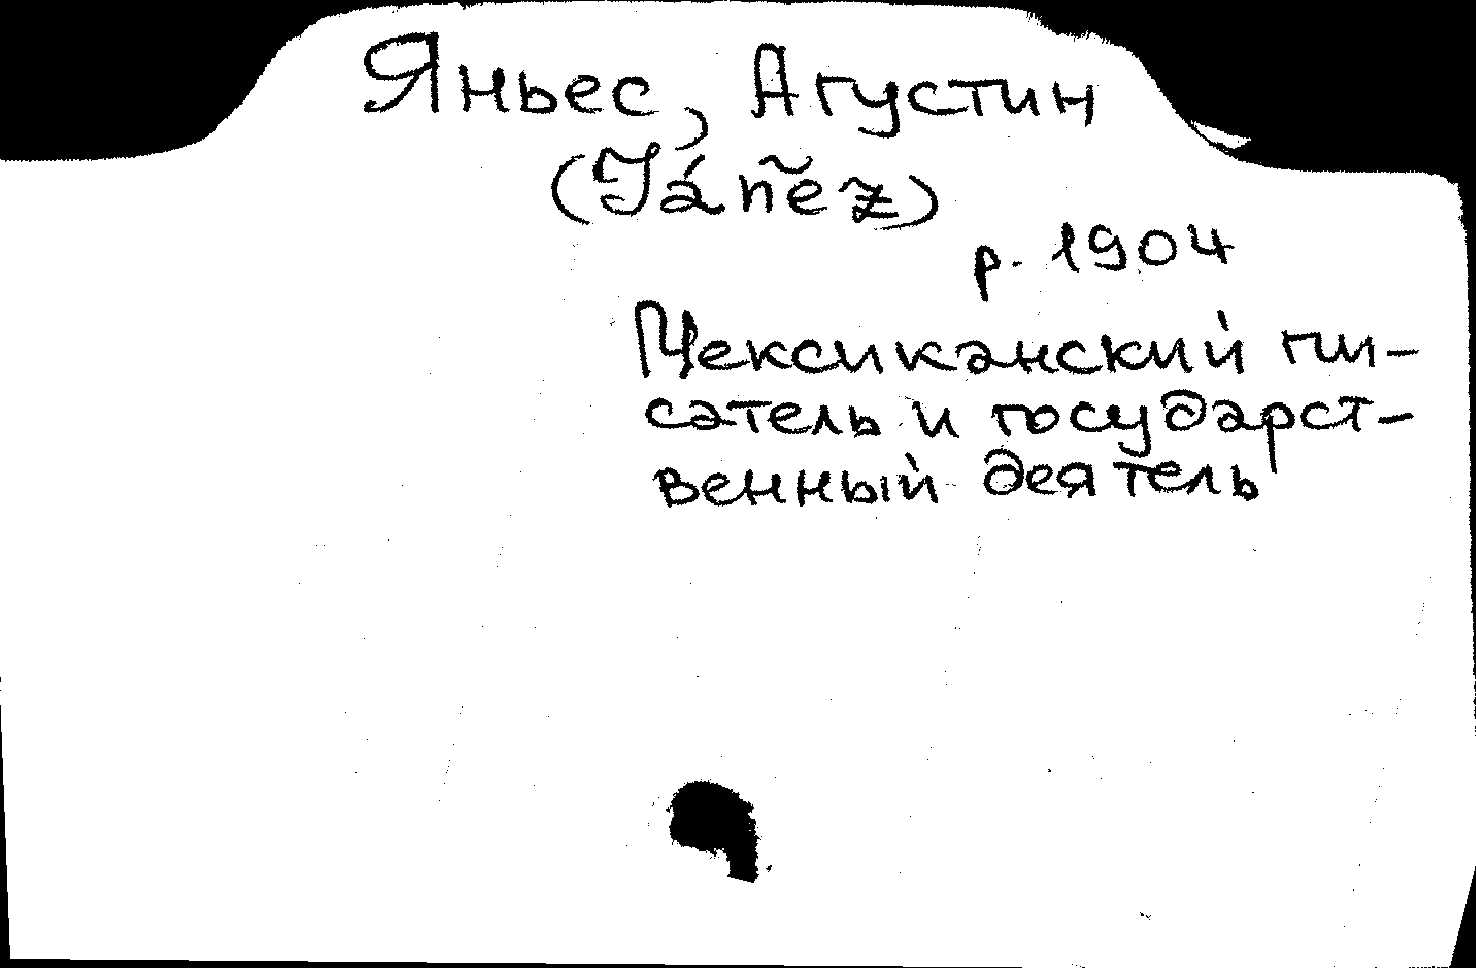 Яньес, Агустин
(Yáñez)
р. 1904
Мексиканский пи-
сатель и государст-
венный деятель